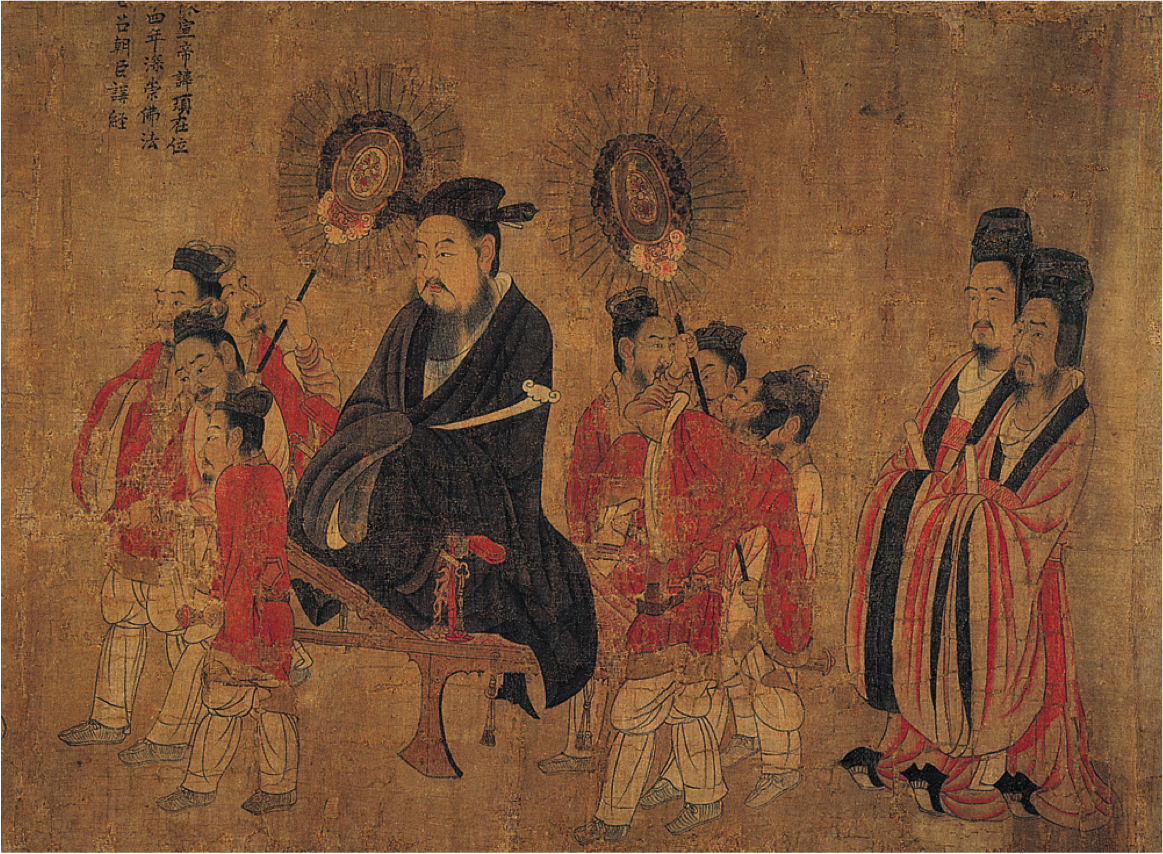 宣帝諱頊在位
四年深崇佛法
召朝臣講經